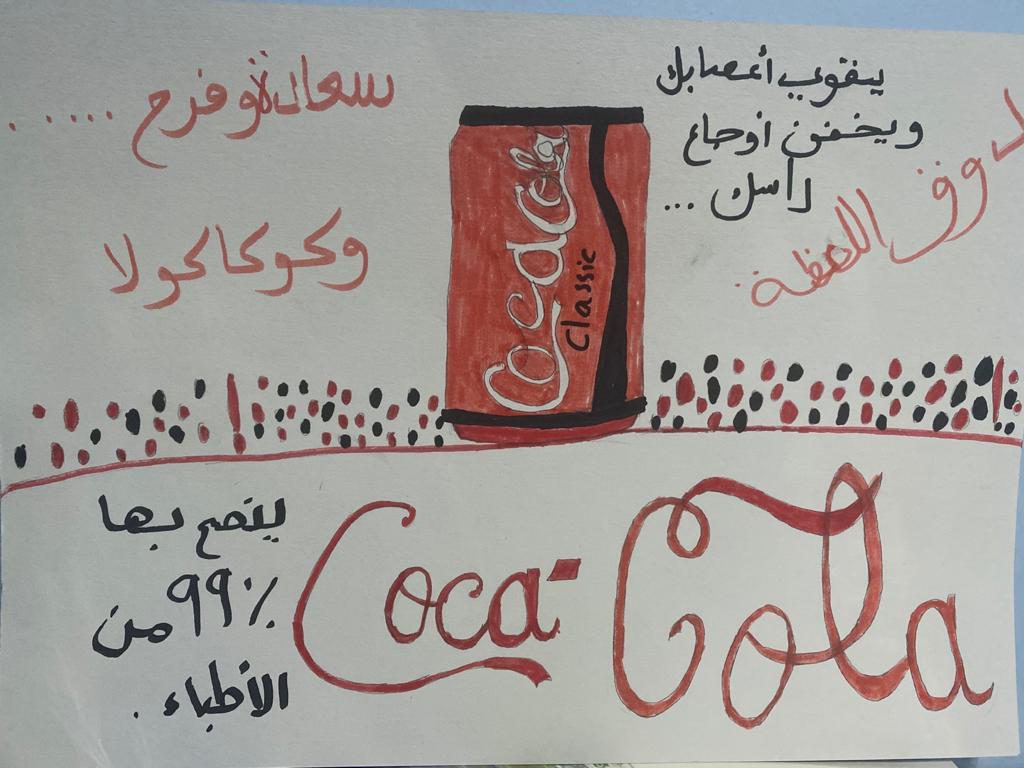 يقوي أعصابك
ويخفف اوجاع
راسك ...
ذوق اللحظة
سعادة وفرح .....
وكوكاكولا
CocaCola
Classic
ينصح بها
99٪ من
الأطباء .
Coca-Cola